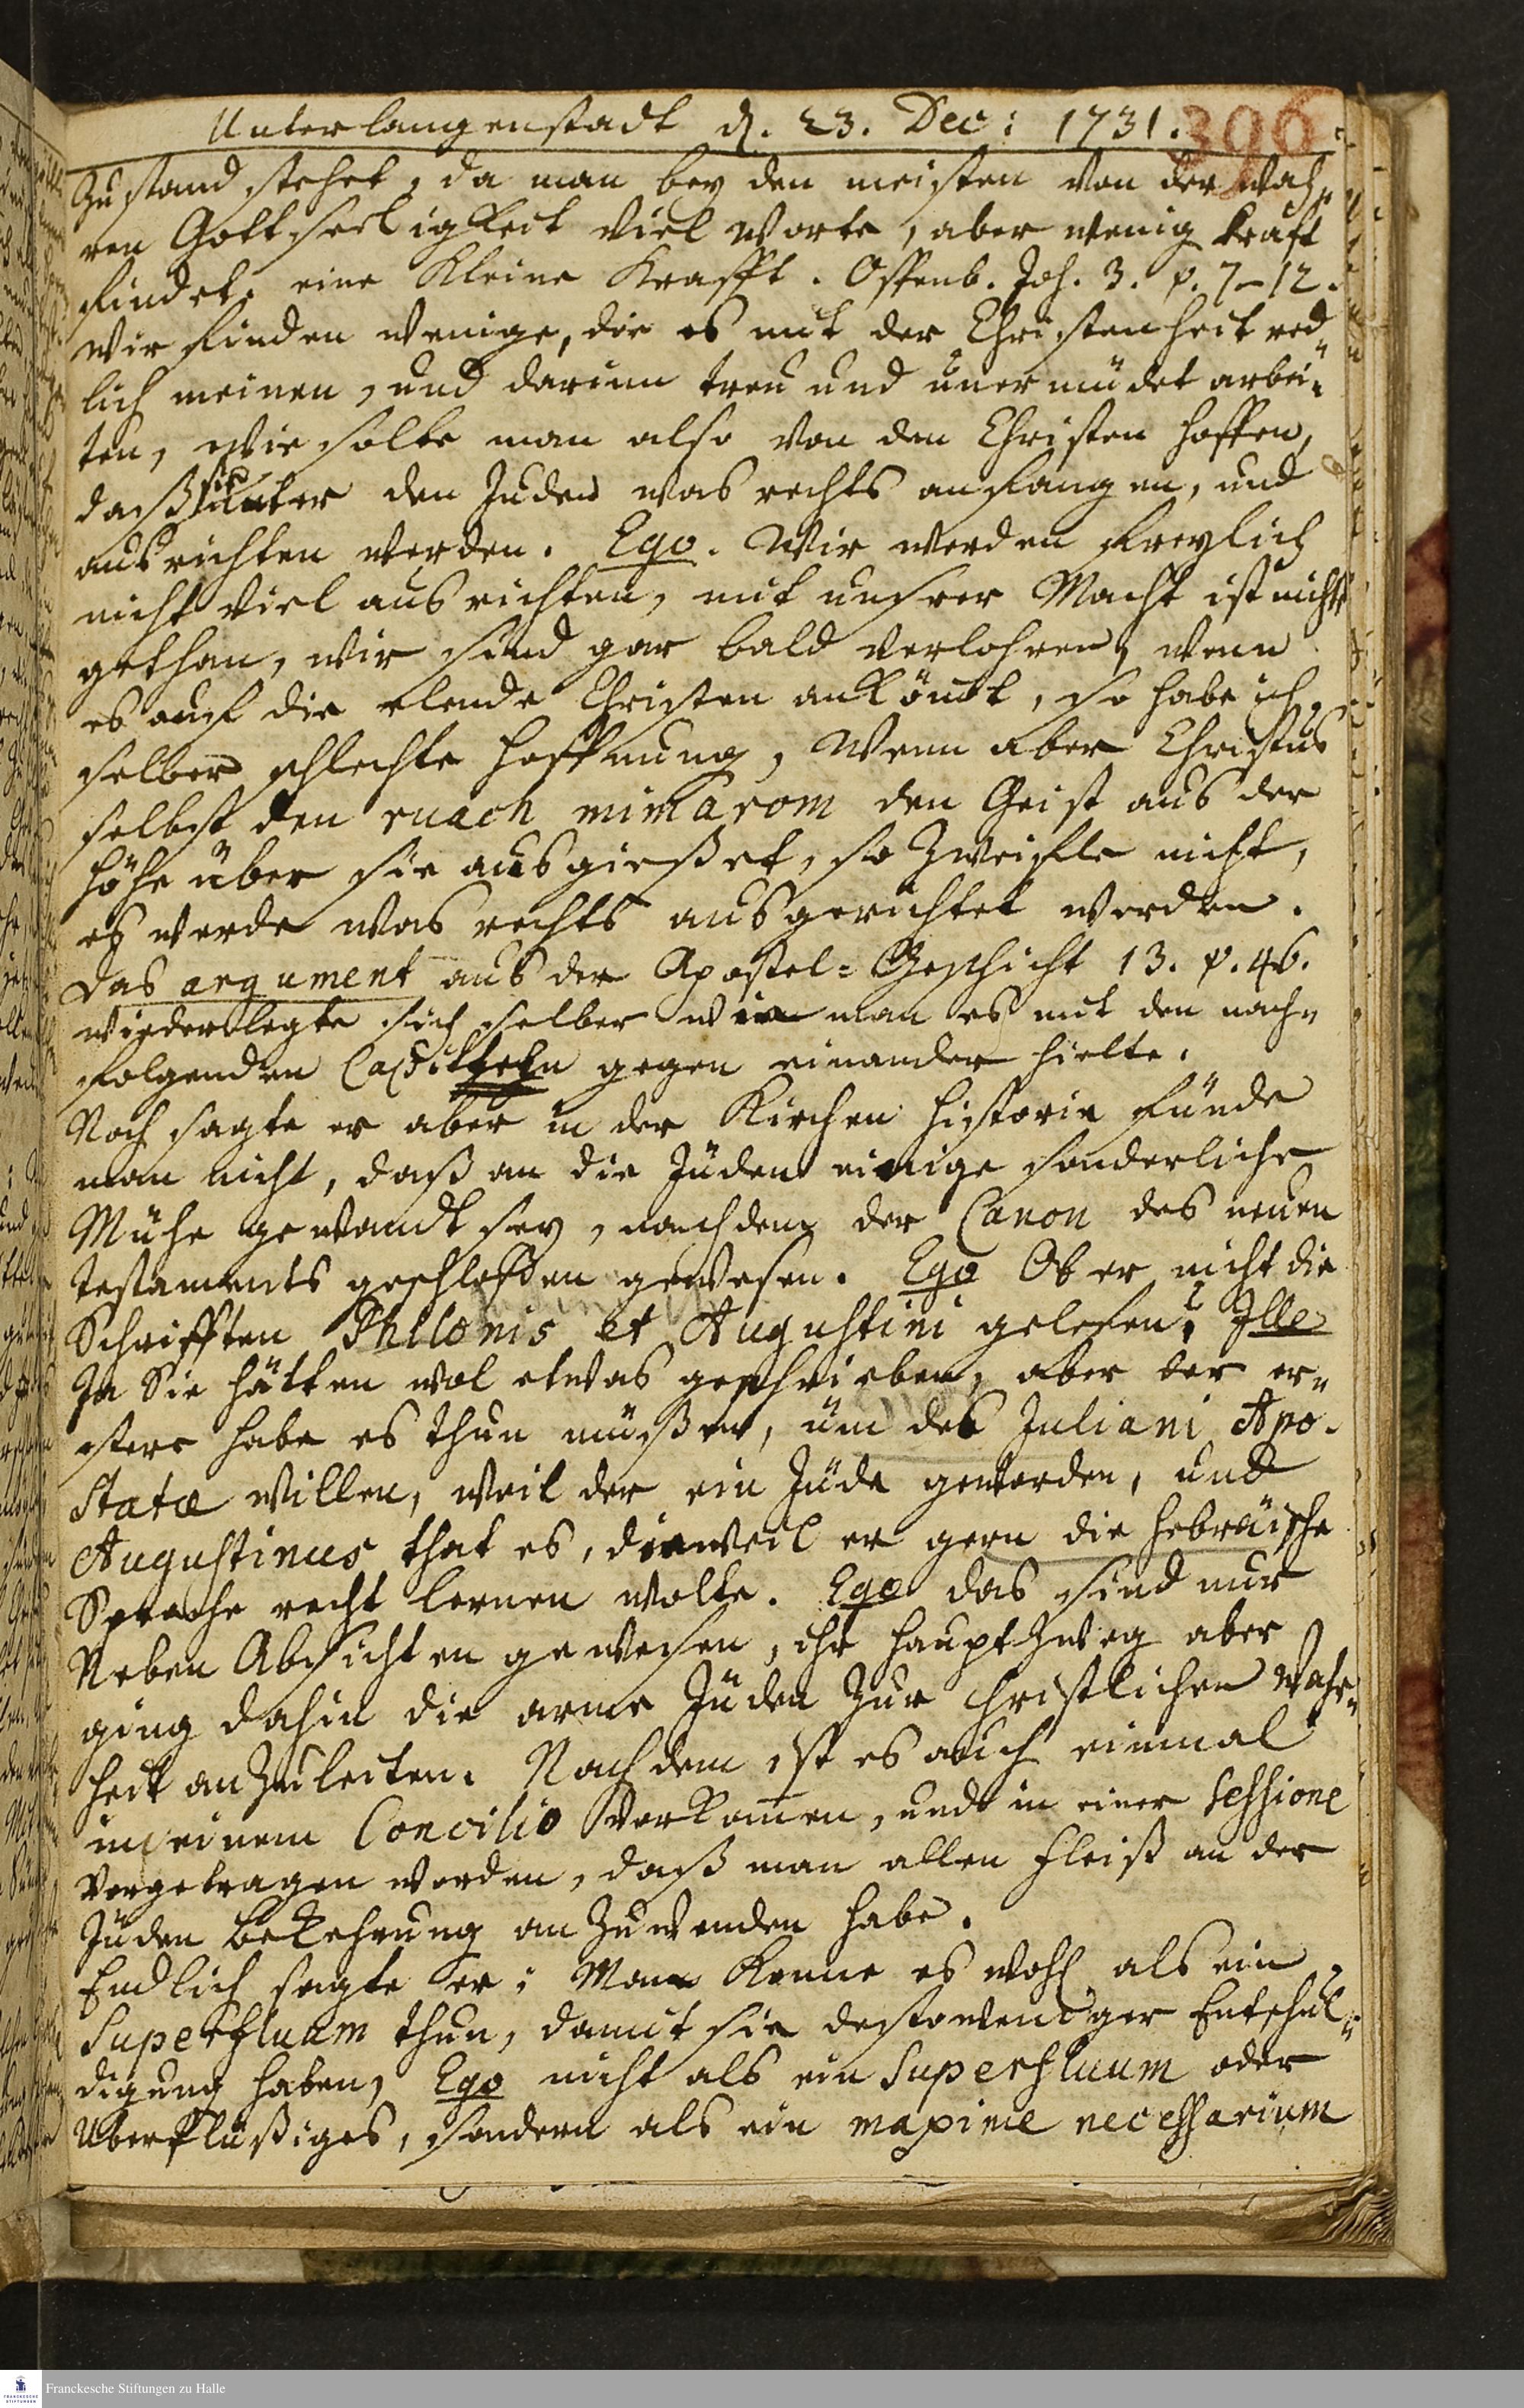 Unterlangenstadt d. 23. Dec: 1731.
396
Zustand stehet, da man bey den meisten von der wah„
ren Gottseeligkeit viel Worte, aber wenig Krafft
findet, eine kleine Krafft. Offenb. Joh. 3. v. 7–12.
Wir finden wenige, die es mit der Christenheit red„
lich meinen, und darinn treu und unermüdet arbei„
ten, wie solte man also von den Christen hoffen,
daß sie unter den Juden was rechts anfangen, und
ausrichten werden. Ego. Wir werden freylich
nicht viel ausrichten, mit unsrer Macht ist nichts
gethan, wir sind gar bald verlohren, wenn
es auf die elende Christen ankömt, so habe ich
selber schlechte Hoffnung, Wenn aber Christus
selbst den ruach mimarom den Geist aus der
Höhe über sie ausgießet, so zweifle nicht,
es werde was rechts ausgerichtet werden.
Das argument aus der Apostel-Geschicht 13. v. 46.
wiederlegte sich selber wie man es mit den nach„
folgenden Capitteln gegen einander hielte.
Noch sagte er aber in der Kirchen Historie fünde
man nicht, daß an die Jüden einige sonderliche
Mühe gewandt sey, nachdem der Canon des neuen
Testaments geschlossen gewesen. Ego Ob er nicht die
Schrifften Philonis et Augustini gelesen? Ille
Ja Sie hätten wol etwas geschrieben, aber der er„
stere habe es thun müßen, üm des Juliani Apo-
statæ willen, weil der ein Jüde geworden, und
Augustinus that es, dieweil er gern die Hebräische
Sprache recht lernen wolte. Ego das sind nur
Neben Absichten gewesen, ihr Haupt Zweg aber
ging dahin die arme Jüden zur christlichen Wahr„
heit anzuleiten. Nachdem ist es auch einmal
in einem Concilio vorkomen, und in einer Sessione
vorgetragen worden, daß man allen Fleiß an der
Jüden Bekehrung anzuwenden habe.
Endlich sagte er: Man könne es wohl als ein
Superfluum thun, damit sie destoweniger Entschul„
digung haben, Ego nicht als ein Superfluum oder
Uberflüßiges, sondern als ein maxime necessarium
Franckesche Stiftungen zu Halle